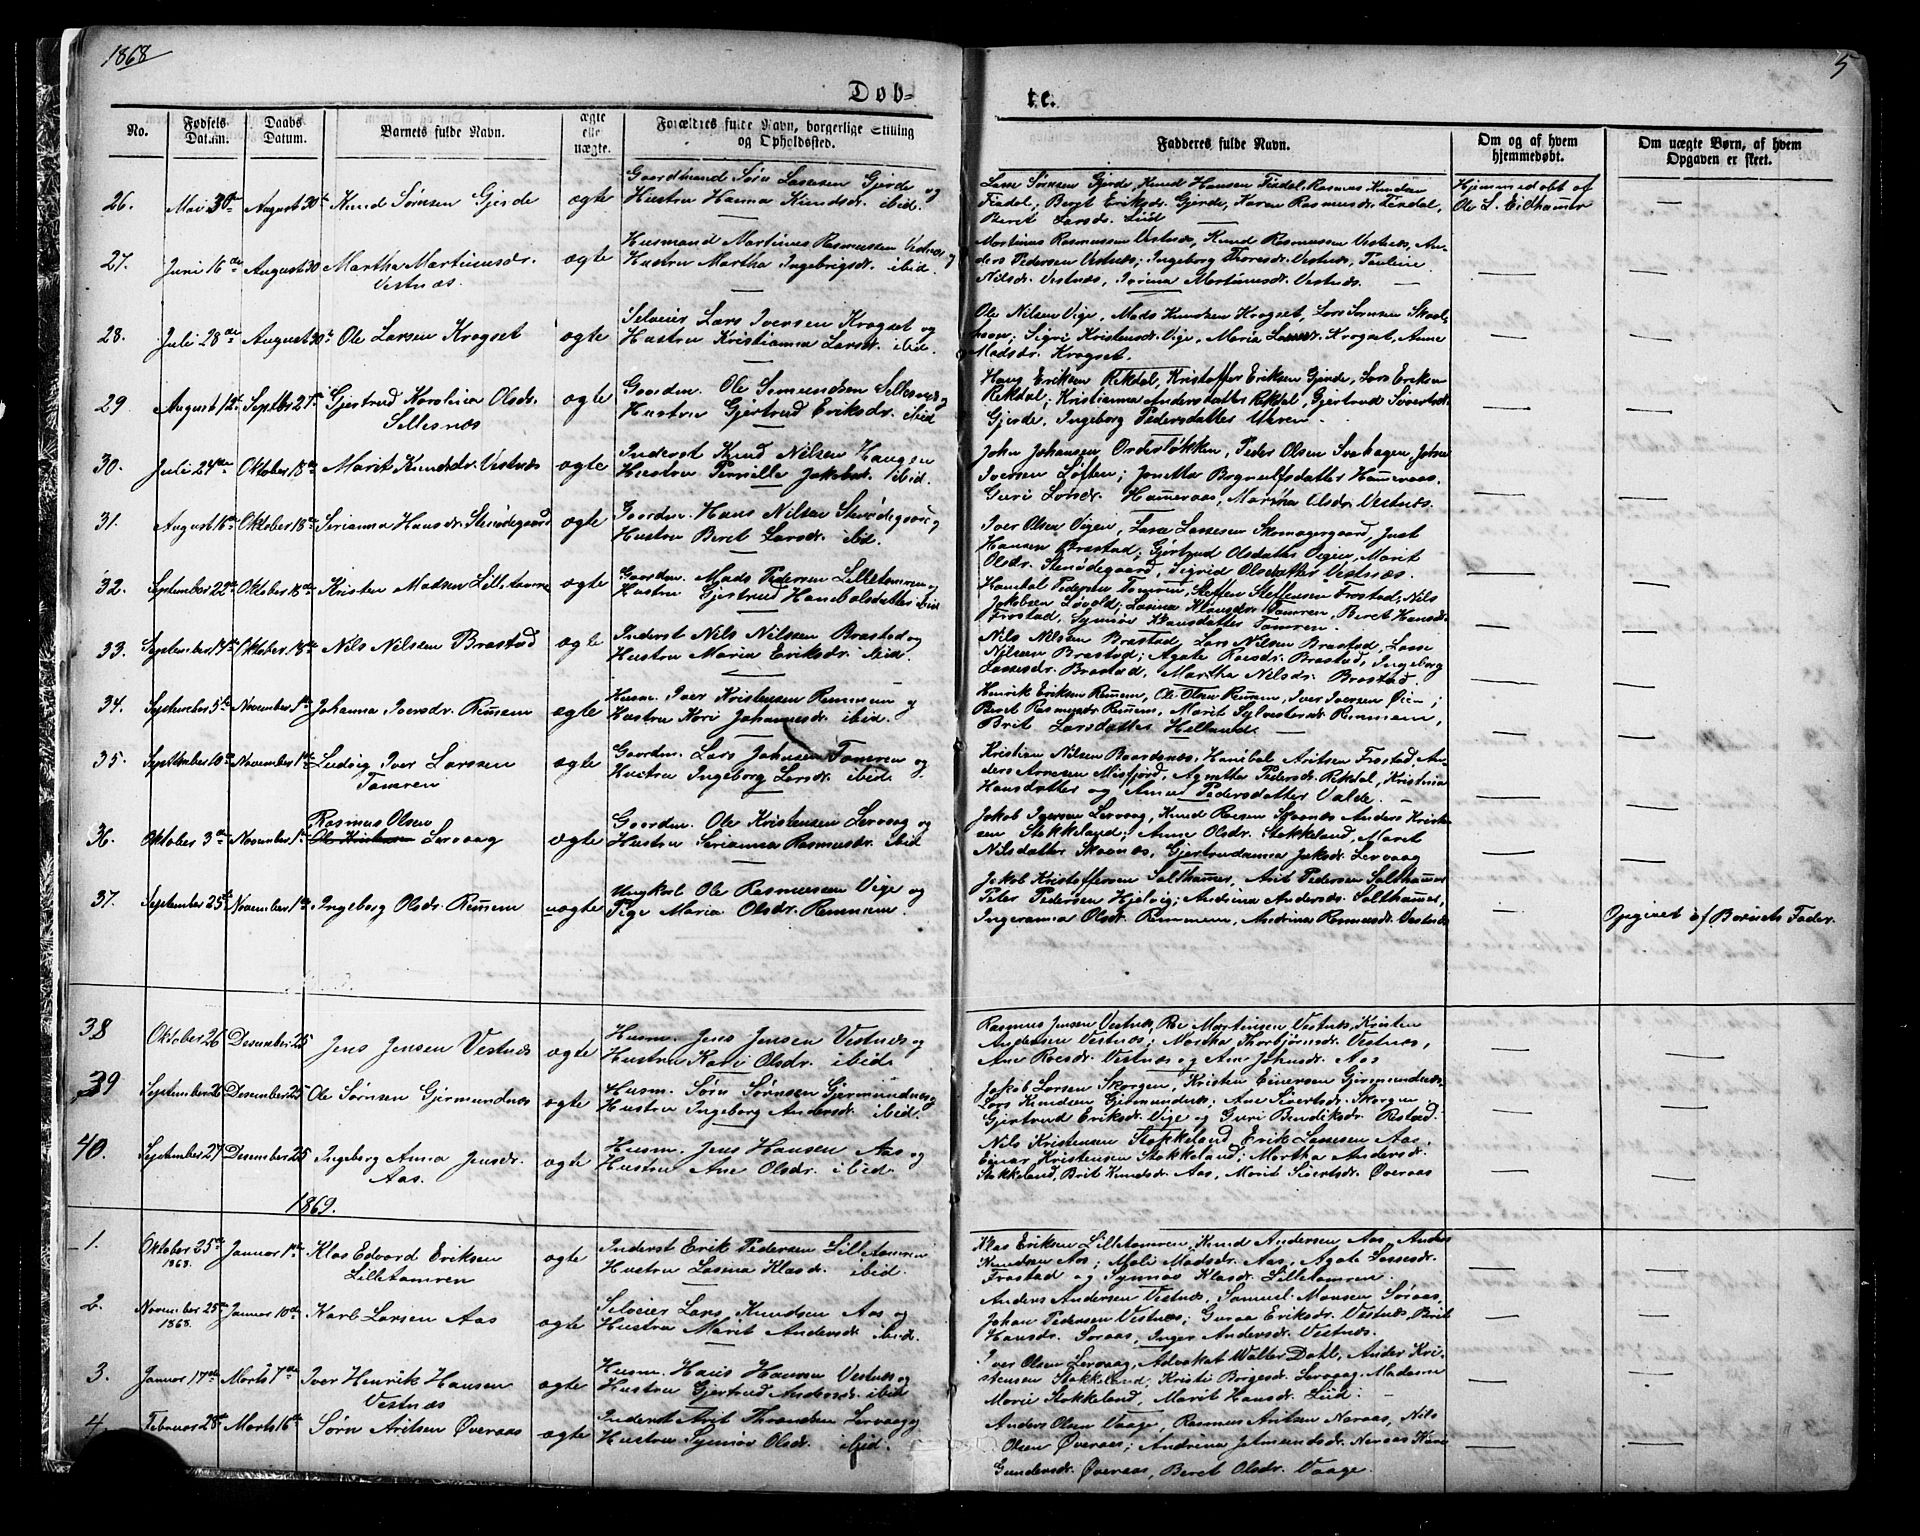 1868
5
Døb-
te.
No.
Fødsels Datum.
Daabs Datum.
Barnets fulde Navn.
ægte elle uægte.
Forældres fulde Navn, borgerlige Stilling og Opholdssted.
Fadderes fulde Navn.
Om og af hvem hjemmedøbt.
Om uægte Børn, af hvem Opgaven er skeet.
26. Mai 30te August 30te Knud Sørnsen Gjerde ægte
Gaardmand Sørn Lassesen Gjerde og
Hustru Hanna Knudsdr. ibid.
Lasse Sørnsen Gjerde, Knud Hansen Fiksdal, Rasmus Knudsen
Fiksdal; Beret Eriksdr. Gjerde, Karen Rasmusdr. Fiksdal,
Beret Larsdr. Liid
Hjemmedøbt af
Ole L. Eidhamer —
27. Juni 16de August 30 Martha Martinusdr.
Vestnæs. ægte
Husmand Martinus Rasmussen Vestnæs og
Hustru Martha Ingebrigsdr. ibid.
Martinus Rasmussen Vestnæs, Knud Rasmussen Vestnæs, An-
ders Pedersen Vestnæs; Ingeborg Thoresdr. Vestnæs, Pauline
Nilsdr. Vestnæs, Martinusdr. Vestnæs. —
28. Juli 28de August 30te Ole Larsen Kragset ægte
Selveier Lars Iversen Kragset og
Hustru Kristianna Larsdr. ibid.
Ole Nilsen Vige, Mads Knudsen Kragset, Lars Sørnsen
Sigri Kristensdr. Vige, Maria Larsdr. Kragset, Anne
Madsdr. Kragset.
29 August 12te Septbr 21de Gjertrud Karoline Olsdr.
Sellesnæs ægte
Gaardm. Ole Semundsen Sellesnæs og
Hustru Gjertrud Eriksdr. ibid
Haug Eriksen Rekdal, Kristoffer Eriksen Gjerde, Lars Eriksen
Rekdal; Kristianna Andersdatter Rekdal, Gjertrud Sivertsdr.
Gjerde, Ingeborg Pedersdatter Uren.
30. Juli 24de Oktober 18de Marit Knudsdr. Vestnæs ægte
Inderst Knud Nilsen Haugen
Hustru Pernille Jakobsdr. ibid.
John Johansen Orderløkken, Peder Olsen Svehagen, John
Iversen Løften; Jonetta Brynulfsdatter Hameraas
Guri Larsdr. Hameraas, Martha Olsdr. Vestnæs.
31. August 16de Oktober 18de Serianna Hansdr. Stenødegaard ægte
Gaardm. Hans Nilsen Stenødegaard og
Hustru Beret Larsdr. ibid.
Iver Olsen Vigen, Lasse Lassesen Skomagergaard, Just
Hansen Brastad; Gjertrud Olsdatter Vigen, Marit
Olsdr. Stenødegaard, Sigrid Olsdatter Vestnæs.
32. September 22de Oktober 18de Kristen Madsen Lilletomren ægte
Gaardm. Mads Pedersen Lilletomren og
Hustru Gjertrud Hanebalsdatter ibid
Hanibal Pedersen Tomren, Steffen Steffensen Frostad, Nils
Jakobsen Løvold; Lasina Klausdr. Tomren, Beret Hansdr.
Frostad, Synnøv Klausdatter Tomren.
33. September 14de Oktober 18de Nils Nilsen Brastad ægte
Inderst Nils Nilsen Brastad og
Hustru Maria Eriksdr. ibid.
Nils Nilsen Brastad, Lars Nilsen Brastad, Lasse
Nilsen Brastad; Agate Roesdr. Brastad, Ingeborg
Lassesdr. Brastad, Martha Nilsdr. Brastad
34. September 5te November 1ste Johanna Iversdr. Remem ægte
Husm. Iver Kristensen Remmem og
Hustru Kari Johannesdr. ibid.
Henrik Eriksen Remem, Ole Olsen Remem, Iver Iversen Øien;
Beret Rasmusdr Remem, Marit Sylvestersdr. Remmem,
Brit Larsdatter Helland.
35. September 10de November 1ste Ludvig Iver Larssen
Tomren ægte
Gaardm. Lars Johnsen Tomren og
Hustru Ingeborg Larsdr. ibid.
Kristian Nilsen Baardsnes, Hanibal Aritsen Frostad, An-
ders Arnesen Misfjord, Agnetha Pedersdr. Rekdal, Kristina
Hansdatter og Anne Pedersdatter Valde. —
36. Oktober 3de November 1ste Rasmus Olsen
Lervaag ægte
Gaardm. Ole Kristensen Lervaag og
Hustru Serianna Rasmusdr. ibid
Jakob Lervaag, Knud Roesen Skaanes Anders Kristen-
sen Stokkeland; Anne Olsdr. Stokkeland, Maret
Nilsdatter Skaanes, Gjertrudanna Jaksdr. Lervaag
37. September 25de November 1ste Ingeborg Olsdr. Remem uægte
Ungkarl Ole Rasmussen Vige og
Pige Maria Olsdr. Remmem.
Jakob Kristoffersen Salthamer, Arit Pedersen Salthamer
Peter Pedersen Hjelvig; Andrina Andersdr. Salthamer,
Ingeranna Olsdr. Remmem, Andrina Rasmusdr. Vestnæs
Opgivet af Barnets Fader.
38 Oktober 26 Desember 25 Jens Jensen Vestnæs ægte
Husm. Jens Jensen Vestnæs og
Hustru Kari Olsdr. ibid.
Rasmus Jensen Vestnæs, Roe Martinsen Vestnæs, Kristen
Andersen Vestnæs; Martha Thorbjørnsdr. Vestnæs,
Ane Roesdr. Vestnæs og Ane Johnsdr. Aas
39 September 26 Desember 25 Ole Sørnsen Gjermundnæs ægte
Husm. Sørn Sørnsen Gjermundnæs og
Hustru Ingeborg Andersdr. ibid.
Jakob Larsen Skorgen, Kristen Einersen Gjermundnæs,
Lars Knudsen Gjermundnæs; Ane Sivertsdr. Skorgen
Gjertrud Eriksdr. Vige og Guri Bendiksdr. Restad.
40. September 27 Desember 25 Ingeborg Anna Jensdr.
Aas. ægte
Husm. Jens Hansen Aas og
Hustru Ane Olsdr. ibid.
Nils Kristensen Stokkeland, Erik Lassesen Aas,
Einar Kristensen Stokkeland; Martha Andersdr.
Stokkeland, Brit Knudsdr. Aas, Marit Sivertsdr. Øveraas
1869.
1. Oktober 25de 1868. Januar 1ste Klas Edvard Eriksen
Lilletomren ægte
Inderst Erik Pedersen Lilletomren
Hustru Lasina Klasdr. ibid.
Klas Eriksen Lilletomren, Knud Andersen Aas, Anders
Knudsen Aas; Madsdr. Aas, Agate Lassesdr.
Frostad og Synnøv Klasdr. Lilletomren.
2. November 25de 1868. Januar 10de Karl Larsen Aas ægte
Selveier Lars Knudsen Aas og
Hustru Marit Andersdr ibid.
Anders Andersen Vestnæs, Samuel Monsen Søraas,
Johan Pedersen Vestnæs; Guraa Eriksdr. Vestnæs, Brit
Hansdr. Søraas, Inger Andersdr. Vestnæs.
3. Januar 17de Marts 7de Iver Henrik Hansen
Vestnæs ægte
Husm. Hans Hansen Vestnæs og
Hustru Gjertrud Andersdr ibid
Iver Olsen Lervaag, Advokat Walter Dahl, Anders Kri-
stensen Stokkeland, Kristi Børgesdr. Lervaag, Madame
Marie Stokkeland, Marit Hansdr. Liid.
4. Februar 28de Marts 16de Sørn Aritsen Øveraas ægte
Inderst Arit Throndsen Lervaag og
Hustru Synnøv Olsdr. ibid.
Anders Olsen Vaage, Rasmus Aritsen Neraas, Nils
Olsen Øveraas; Andrina Amundsdr. Neraas Kari
Gundersdr. Øveraas, Beret Olsdr. Vaage.